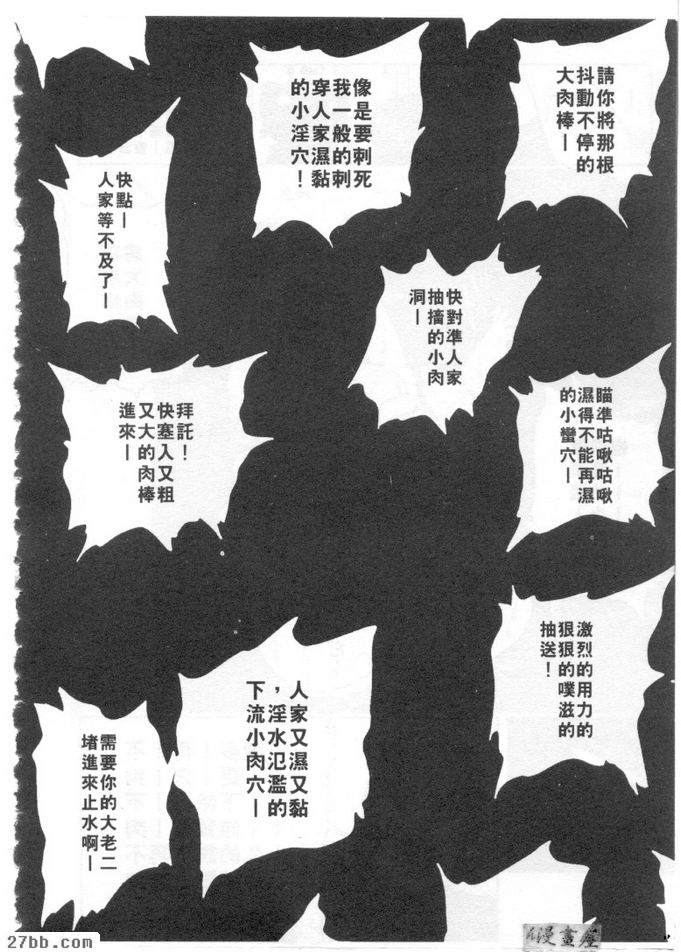 請你將那根
抖動不停的
大肉棒—
像是要刺死
我一般的刺
穿人家濕黏
的小淫穴！
快點—
人家等不及了—
快對準人家
抽搐的小肉
洞—
瞄準咕啾咕啾
濕得不能再濕
的小蠻穴—
拜託！
快塞入又粗
又大的肉棒
進來—
激烈的用力的
狠狠的噗滋的
抽送！
人家又濕又黏
，淫水氾濫的
下流小肉穴—
需要你的大老二
堵進來止水啊—
漫畫屋
27bb.com